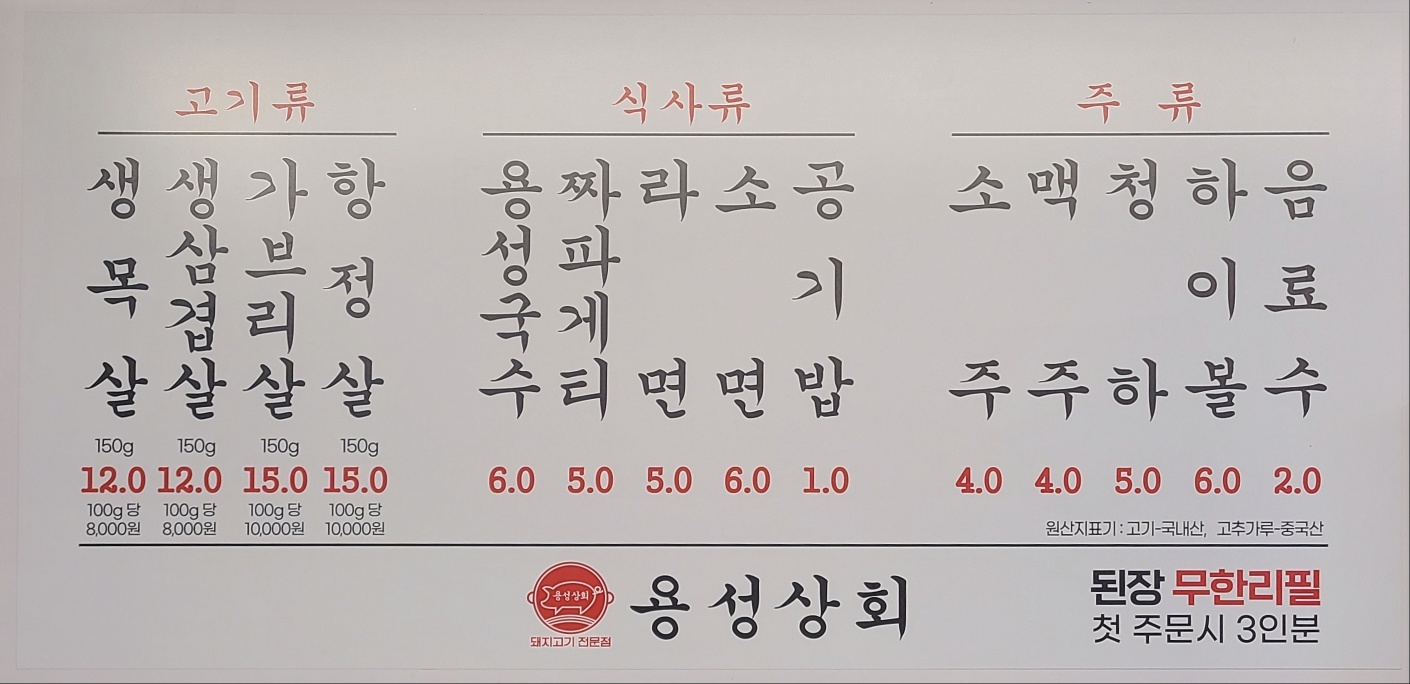 고기류
생목살 150g 12.0 100g 당 8,000원
생삼겹살 150g 12.0 100g 당 8,000원
가브리살 150g 15.0 100g 당 10,000원
항정살 150g 15.0 100g 당 10,000원
식사류
용성국수 6.0
짜파게티 5.0
라면 5.0
소면 6.0
공기밥 1.0
주 류
소주 4.0
맥주 4.0
청하 5.0
하이볼 6.0
음료수 2.0
원산지표기 : 고기-국내산, 고추가루-중국산
용성상회
돼지고기 전문점
용성상회
된장 무한리필
첫 주문시 3인분